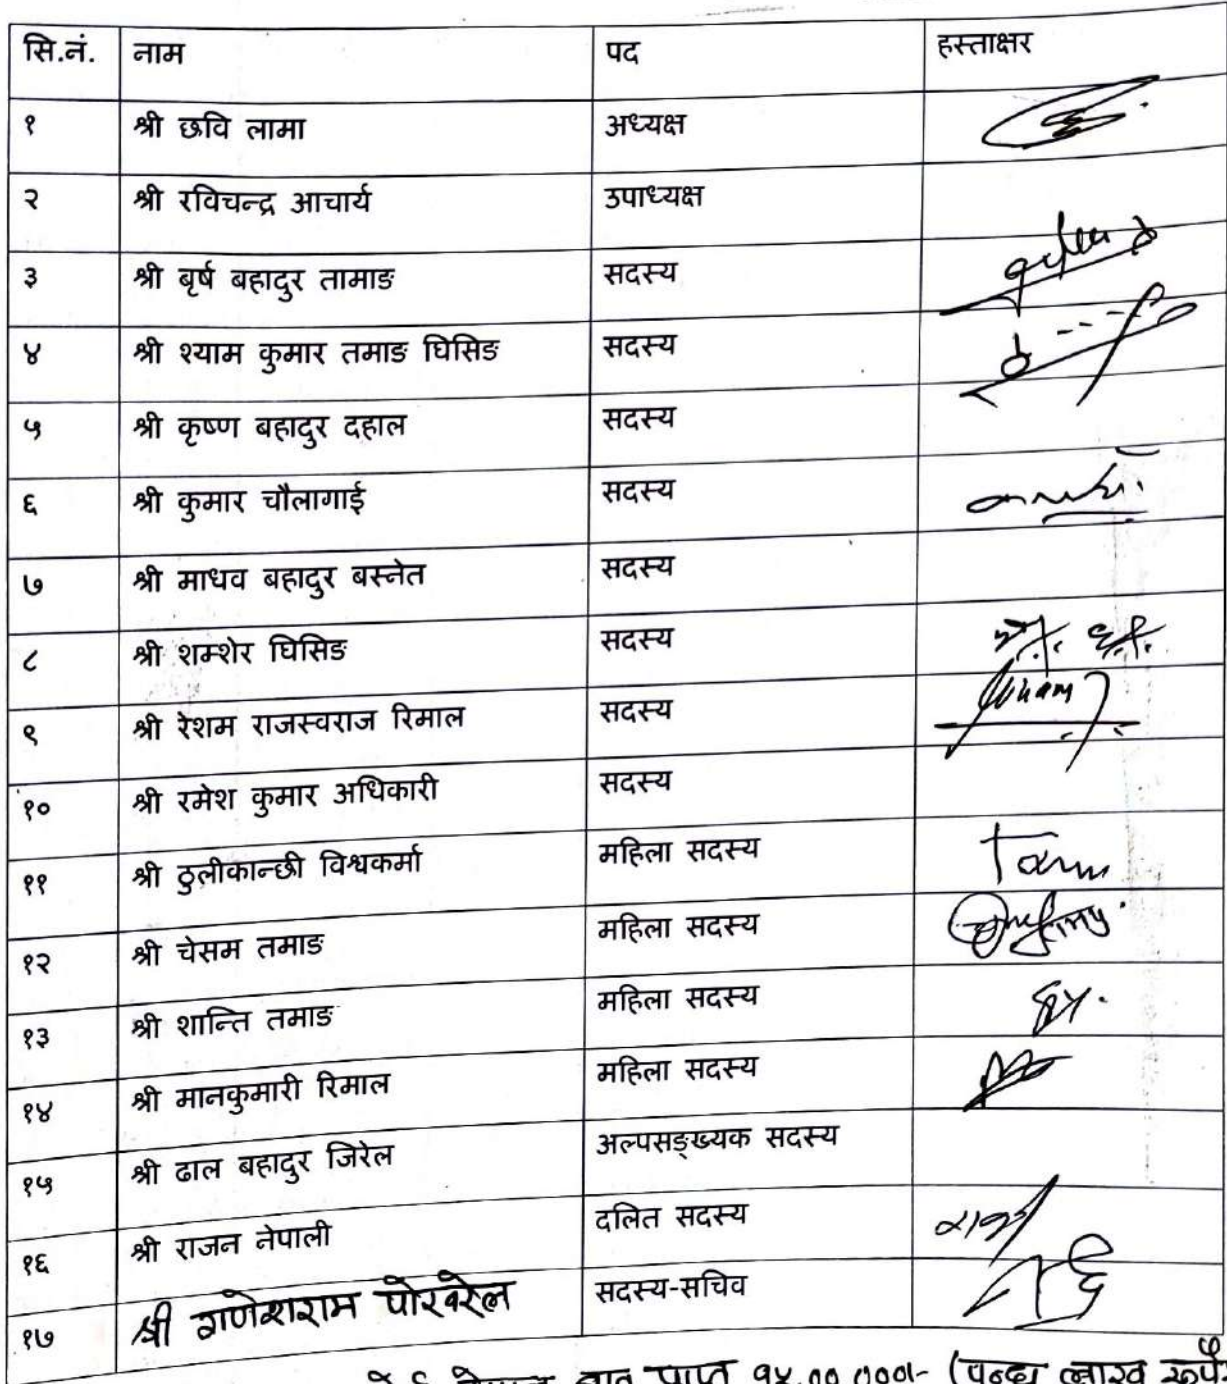 सि.नं. नाम पद हस्ताक्षर
१ श्री छवि लामा अध्यक्ष
२ श्री रविचन्द्र आचार्य उपाध्यक्ष
३ श्री बृर्ष बहादुर तामाङ सदस्य
४ श्री श्याम कुमार तमाङ घिसिङ सदस्य
५ श्री कृष्ण बहादुर दहाल सदस्य
६ श्री कुमार चौलागाई सदस्य
७ श्री माधव बहादुर बस्नेत सदस्य
८ श्री शम्शेर घिसिङ सदस्य
९ श्री रेशम राजस्वराज रिमाल सदस्य
१० श्री रमेश कुमार अधिकारी सदस्य
११ श्री ठुलीकान्छी विश्वकर्मा महिला सदस्य
१२ श्री चेसम तमाङ महिला सदस्य
१३ श्री शान्ति तमाङ महिला सदस्य
१४ श्री मानकुमारी रिमाल महिला सदस्य
१५ श्री ढाल बहादुर जिरेल अल्पसङ्ख्यक सदस्य
१६ श्री राजन नेपाली दलित सदस्य
१७ श्री गणेशराम पोखरेल सदस्य-सचिव
नेपाल बाट प्राप्त १५,००,०००।- (पन्ध्र लाख